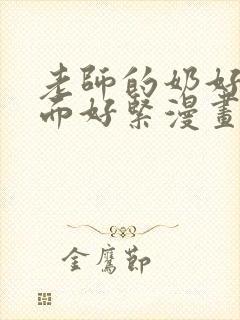 老師的奶好
而好緊漫畫
金鷹節